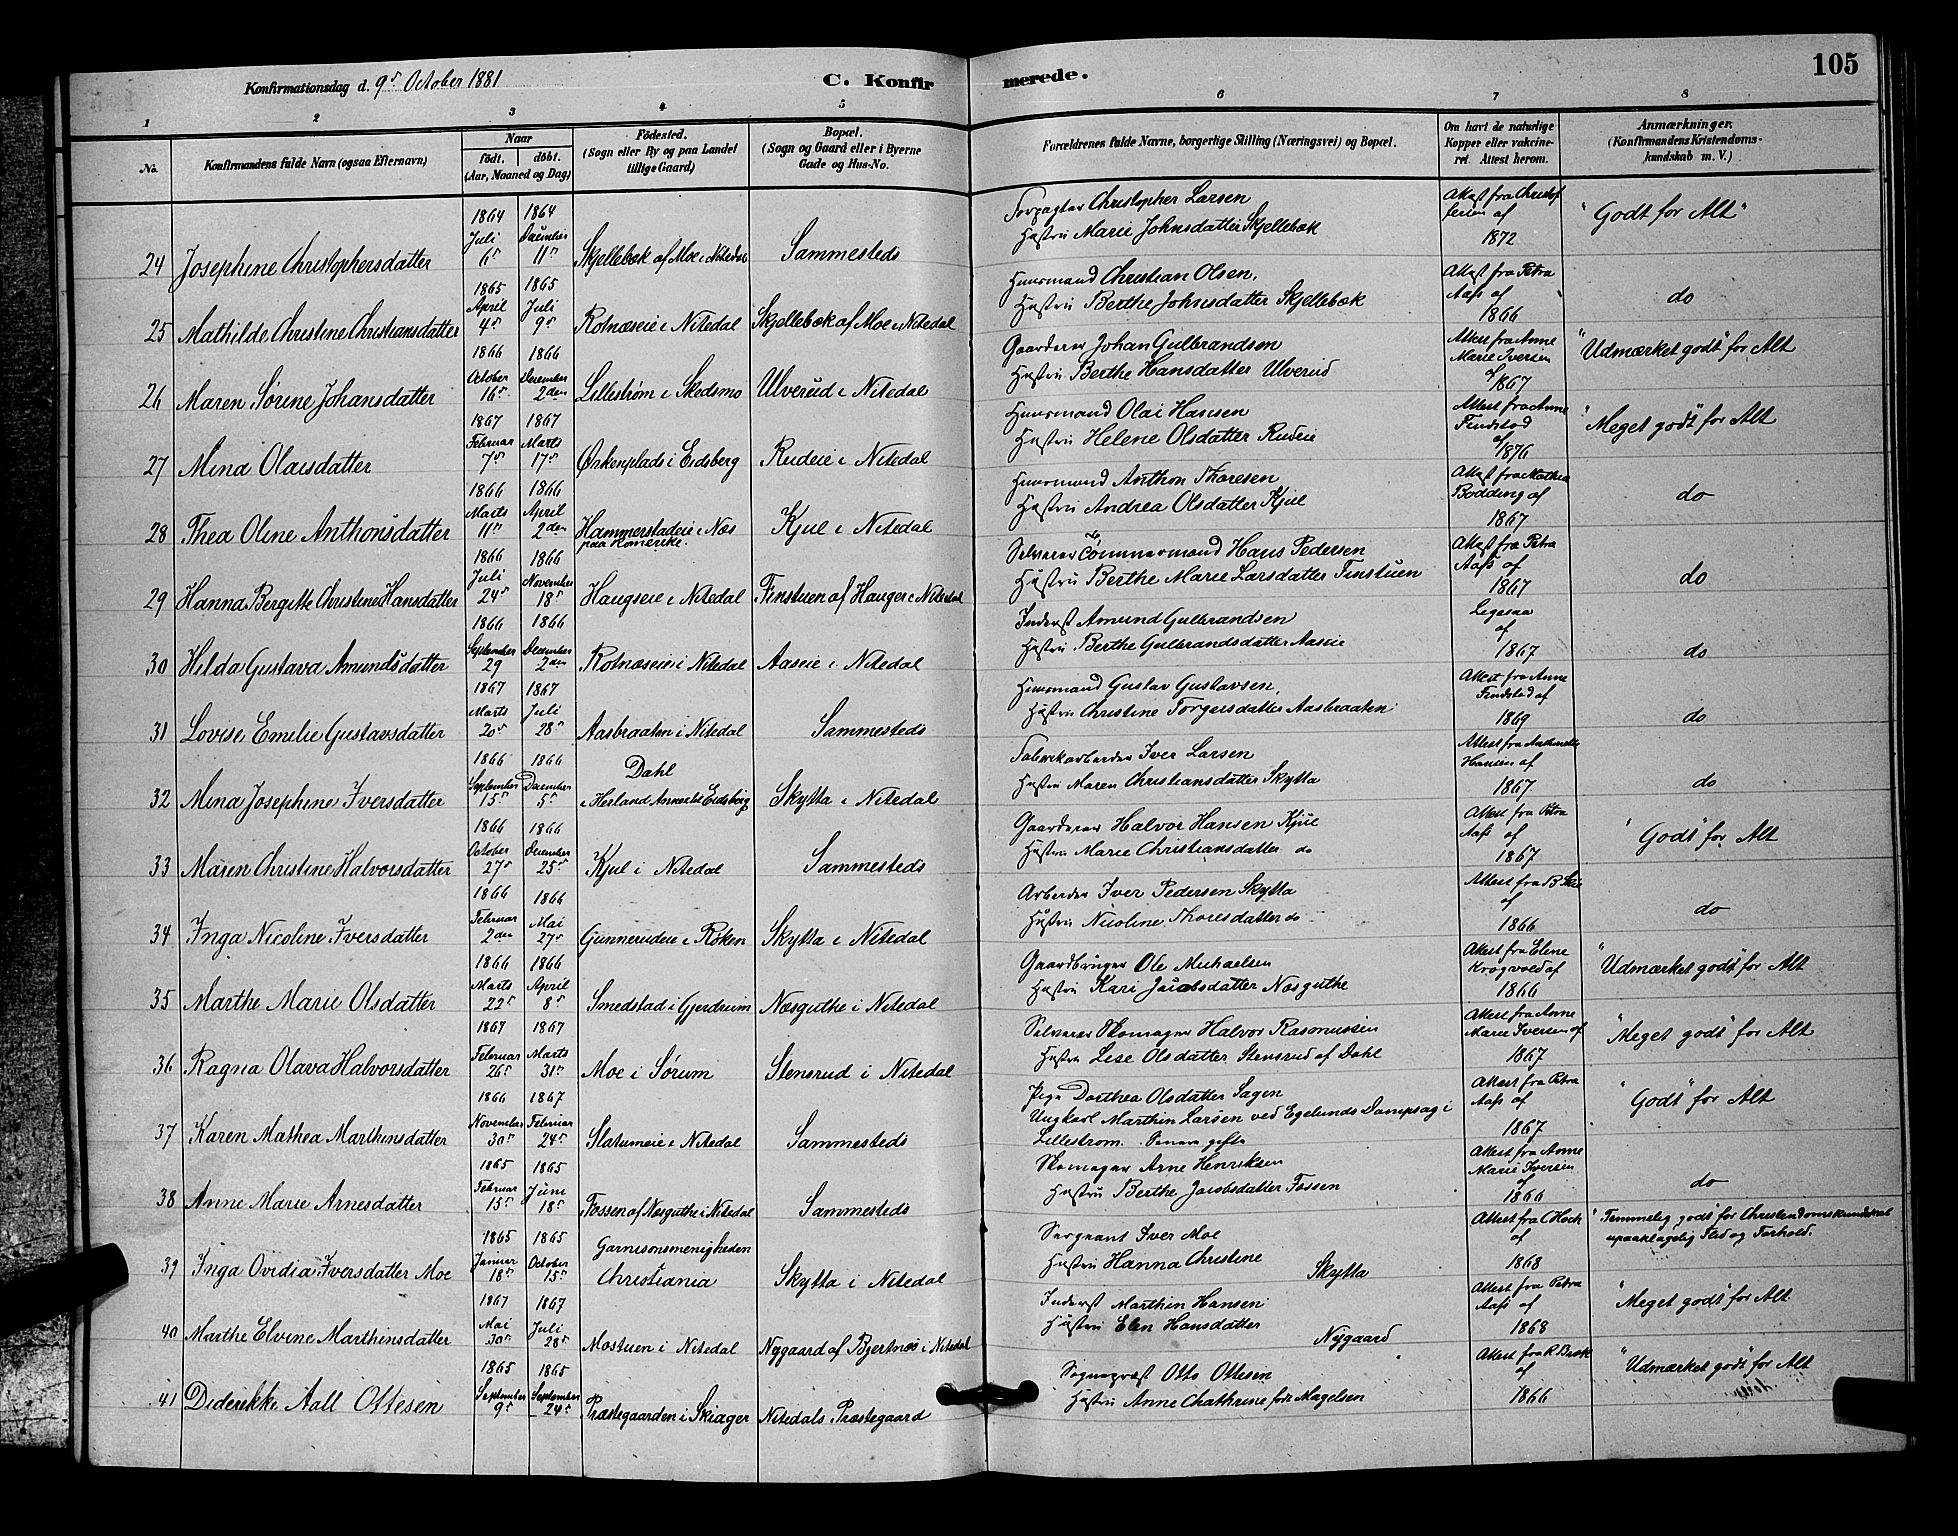 Konfirmationsdag d. 9de October 1881
C. Konfirmerede.
105
1 2 3 4 5 6 7 8
No.
Konfirmandens fulde Navn (ogsaa Efternavn)
Naar
födt. döbt.
(Aar, Maaned og Dag)
Födested.
(Sogn eller By og paa Landet
tillige Gaard)
Bopæl.
(Sogn og Gaard eller i Byerne
Gade og Hus-No.
Forældrenes fulde Navne, borgerlige Stilling (Næringsvei) og Bopæl.
Om havt de naturlige
Kopper eller vakcine-
ret. Attest herom.
Anmærkninger,
(Konfirmandens Kristendoms-
kundskab m. V.)
24 Josephine Christophersdatter
1864 Juli 6te
1864 December 11te
Skjellebæk af Moe i Nitedal
Sammesteds
Forpagter Christopher Larsen
Hustru Marie Johnsdatter Skjellebæk
Attest fra Christof
fersen af
1872
"Godt for Alt"
25 Mathilde Christine Christiansdatter
1865 April 4de
1865 Juli 9de
Rotnæseie i Nitedal
Skjellebæk af Moe i Nitedal
Huusmand Christian Olsen,
Hustru Berthe Johnsdatter Skjellebæk
Attest fra Petra
Aass af
1866
do
26 Maren Sørine Johansdatter
1866 October 16de
1866 December 2den
Lillestrøm i Skedsmo
Ulverud i Nitedal
Gaardeier Johan Gulbrandsen
Hustru Berthe Hansdatter Ulverud
Attest fra Anne
Marie Iversen
af 1867
"Udmærket godt" for Alt
27 Mina Olaisdatter
1867 Februar 7de
1867 Marts 17de
Ørkenplads i Eidsberg
Rudeie i Nitedal
Huusmand Olai Hansen
Hustru Helene Olsdatter Rudeie
Attest fra Anne
Findstad
af
1876
"Meget godt" for Alt
28 Thea Oline Anthonsdatter
1866 Marts 11te
1866 April 2den
Hammerstadeie i Næs
paa Romerike.
Kjul i Nitedal
Huusmand Anthon Thoresen
Hustru Andrea Olsdatter Kjul
Attest fra Mathea
Bodding af
1867
do
29 Hanna Bergitte Christine Hansdatter
1866 Juli 24de
1866 November 18de
Haugseie i Nitedal
Finstuen af Hauger i Nitedal
Selveier Tømmermand Hans Pedersen
Hustru Berthe Marie Larsdatter Finstuen
Attest fra Petra
Aass af
1867
do
30 Hilda Gustava Amundsdatter
1866 September 29
1866 December 2den
Rotnæseie i Nitedal
Aaseie i Nitedal
Inderst Amund Gulbrandsen
Hustru Berthe Gulbrandsdatter Aaseie
Legesaa
af
1867
do
31 Lovise Emilie Gustavsdatter
1867 Marts 20de
1867 Juli 28de
Aasbraaten i Nitedal
Sammesteds
Huusmand Gustav Gustavsen,
Hustru Christine Torgersdatter Aasbraaten
Attest fra Anne
Findstad af
1869
do
32 Mina Josephine Iversdatter
1866 September 15de
1866 December 5de
Dahl
i Herland Annex til Eidsberg
Skytta i Nitedal
Fabrikarbeider Iver Larsen
Hustru Maren Christiansdatter Skytta
Attest fra
Hansen af
1867
do
33 Maren Christine Halvorsdatter
1866 October 27de
1866 December 25de
Kjul i Nitedal
Sammesteds
Gaardeier Halvor Hansen Kjul
Hustru Marie Christiansdatter do
Attest fra Petra
Aass af
1867
"Godt" for Alt
34 Inga Nicoline Iversdatter
1866 Februar 2den
1866 Mai 27de
Gunnerudeie i Røken
Skytta i Nitedal
Arbeider Iver Pedersen Skytta
Hustru Nicoline Thoresdatter do
Attest fra B
af
1866
do
35 Marthe Marie Olsdatter
1866 Marts 22de
1866 April 8de
Smedstad i Gjerdrum
Næsguthe i Nitedal
Gaardbruger Ole Michaelsen
Hustru Kari Jacobsdatter Næsguthe
Attest fra Elene
Krogvold af
1866
"Udmærket godt" for Alt
36 Ragna Olava Halvorsdatter
1867 Februar 26de
1867 Marts 31te
Moe i Sørum
Stensrud i Nitedal
Selveier Skomager Halvor Rasmussen
Hustru Lise Olsdatter Stensrud af Dahl
Attest fra Anne
Marie Iversen af
1867
"Meget godt" for Alt
37 Karen Mathea Marthinsdatter
1866 November 30te
1867 Februar 24de
Slatumeie i Nitedal
Sammesteds
Pige Dorthea Olsdatter Sagen
Ungkarl Marthin Larsen ved Egelunds Dampsag i
Lillestrøm. Senere gifte
Attest fra Petra
Aass af
1867
"Godt" for Alt
38 Anne Marie Arnesdatter
1865 Februar 15de
1865 Juni 18de
Fossen af Næsguthe i Nitedal
Sammesteds
Skomager Arne Henriksen
Hustru Berthe Jacobsdatter Fossen
Attest fra Anne
Marie Iversen
af
1866
do
39 Inga Ovidia Iversdatter Moe
1865 Januar 18de
1865 October 15de
Garnisonsmenigheden
Christiania
Skytta i Nitedal
Sergeant Iver Moe
Hustru Hanna Christine Skytta
Attest fra C Hock
af
1868
"Temmelig godt" for Christendomskundskab
upaaklagelig Flid og Forhold.
40 Marthe Elvine Marthinsdatter
1867 Mai 30te
1867 Juli 28de
Mostuen i Nitedal
Nygaard af Bjertnæs i Nitedal
Inderst Marthin Hansen
Hustru Elen Hansdatter Nygaard
Attest fra Petra
Aass af
1868
"Meget godt" for Alt
41 Diderikke Aall Ottesen
1865 September 9de
1865 September 24de
Præstegaarden i Skiager
Nitedals Præstegaard
Sognepræst Otto Ottesen
Hustru Anne Chathrine født Magelsen
Attest fra R Bæk
af
1866
"Udmærket godt" for Alt